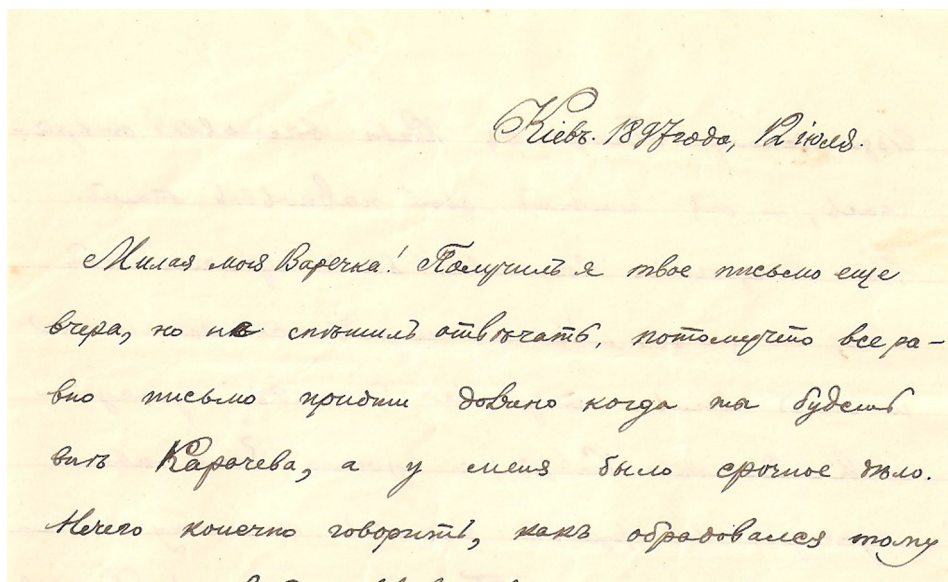 Кіевъ. 1897 года, 12 іюля.
Милая моя Варечка! Получилъ я твое письмо еще
вчера, но не спѣшилъ отвѣчать, потомучто все ра-
вно письмо придти должно когда ты будешь
Карачева, а у меня было срочное дѣло.
Нечего конечно говорить, какъ обрадовался тому